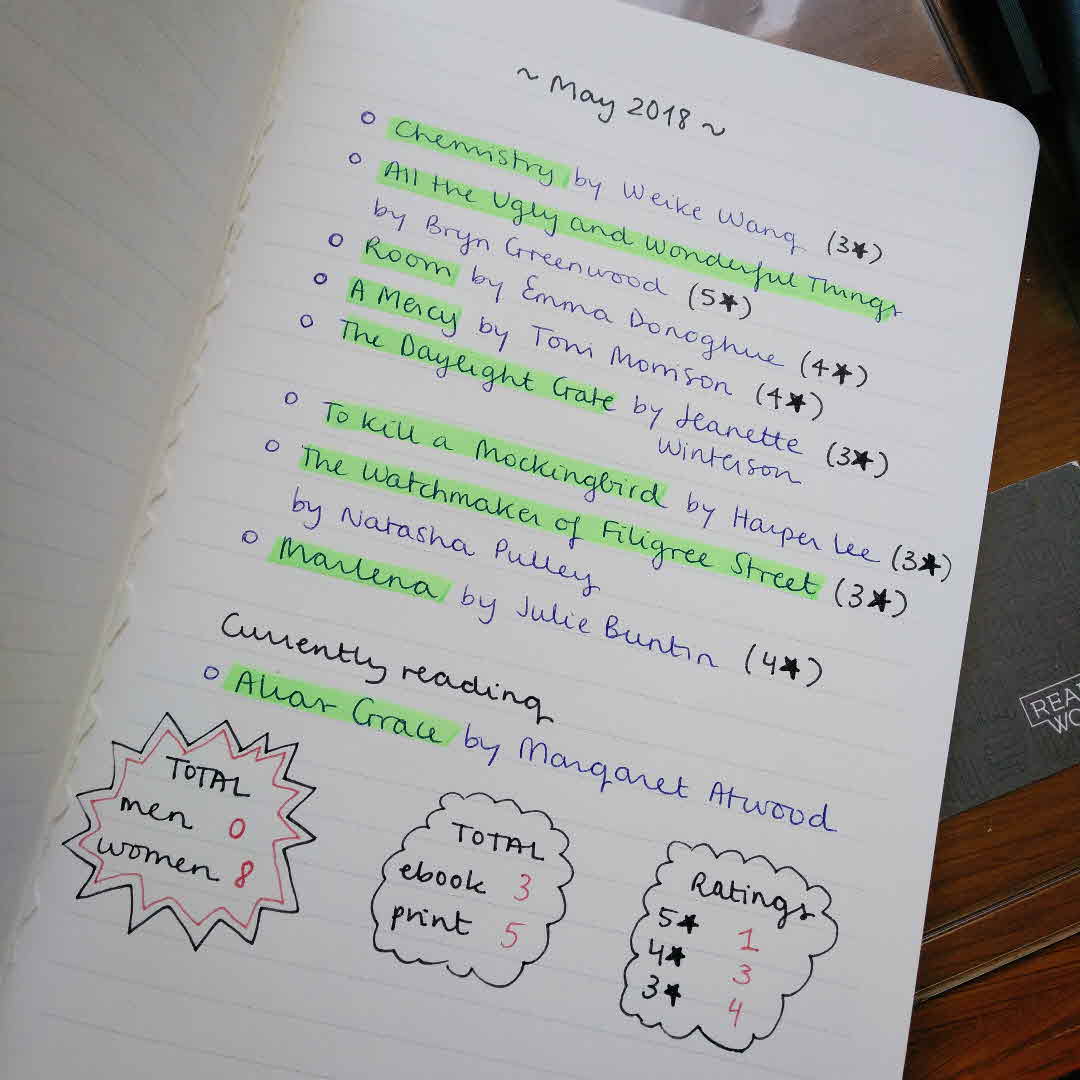 ~ May 2018 ~
Chemistry by Weike Wang (3★)
All the Ugly and Wonderful Things
by Bryn Greenwood (5★)
Room by Emma Donoghue (4★)
A Mercy by Toni Morrison (4★)
The Daylight Gate by Jeanette
Winterson (3★)
To Kill a Mockingbird by Harper Lee (3★)
The Watchmaker of Filigree Street (3★)
by Natasha Pulley
Marlena by Julie Buntin (4★)
Currently reading
Alias Grace by Margaret Atwood
TOTAL
men 0
women 8
TOTAL
ebook 3
print 5
Ratings
5★ 1
4★ 3
3★ 4